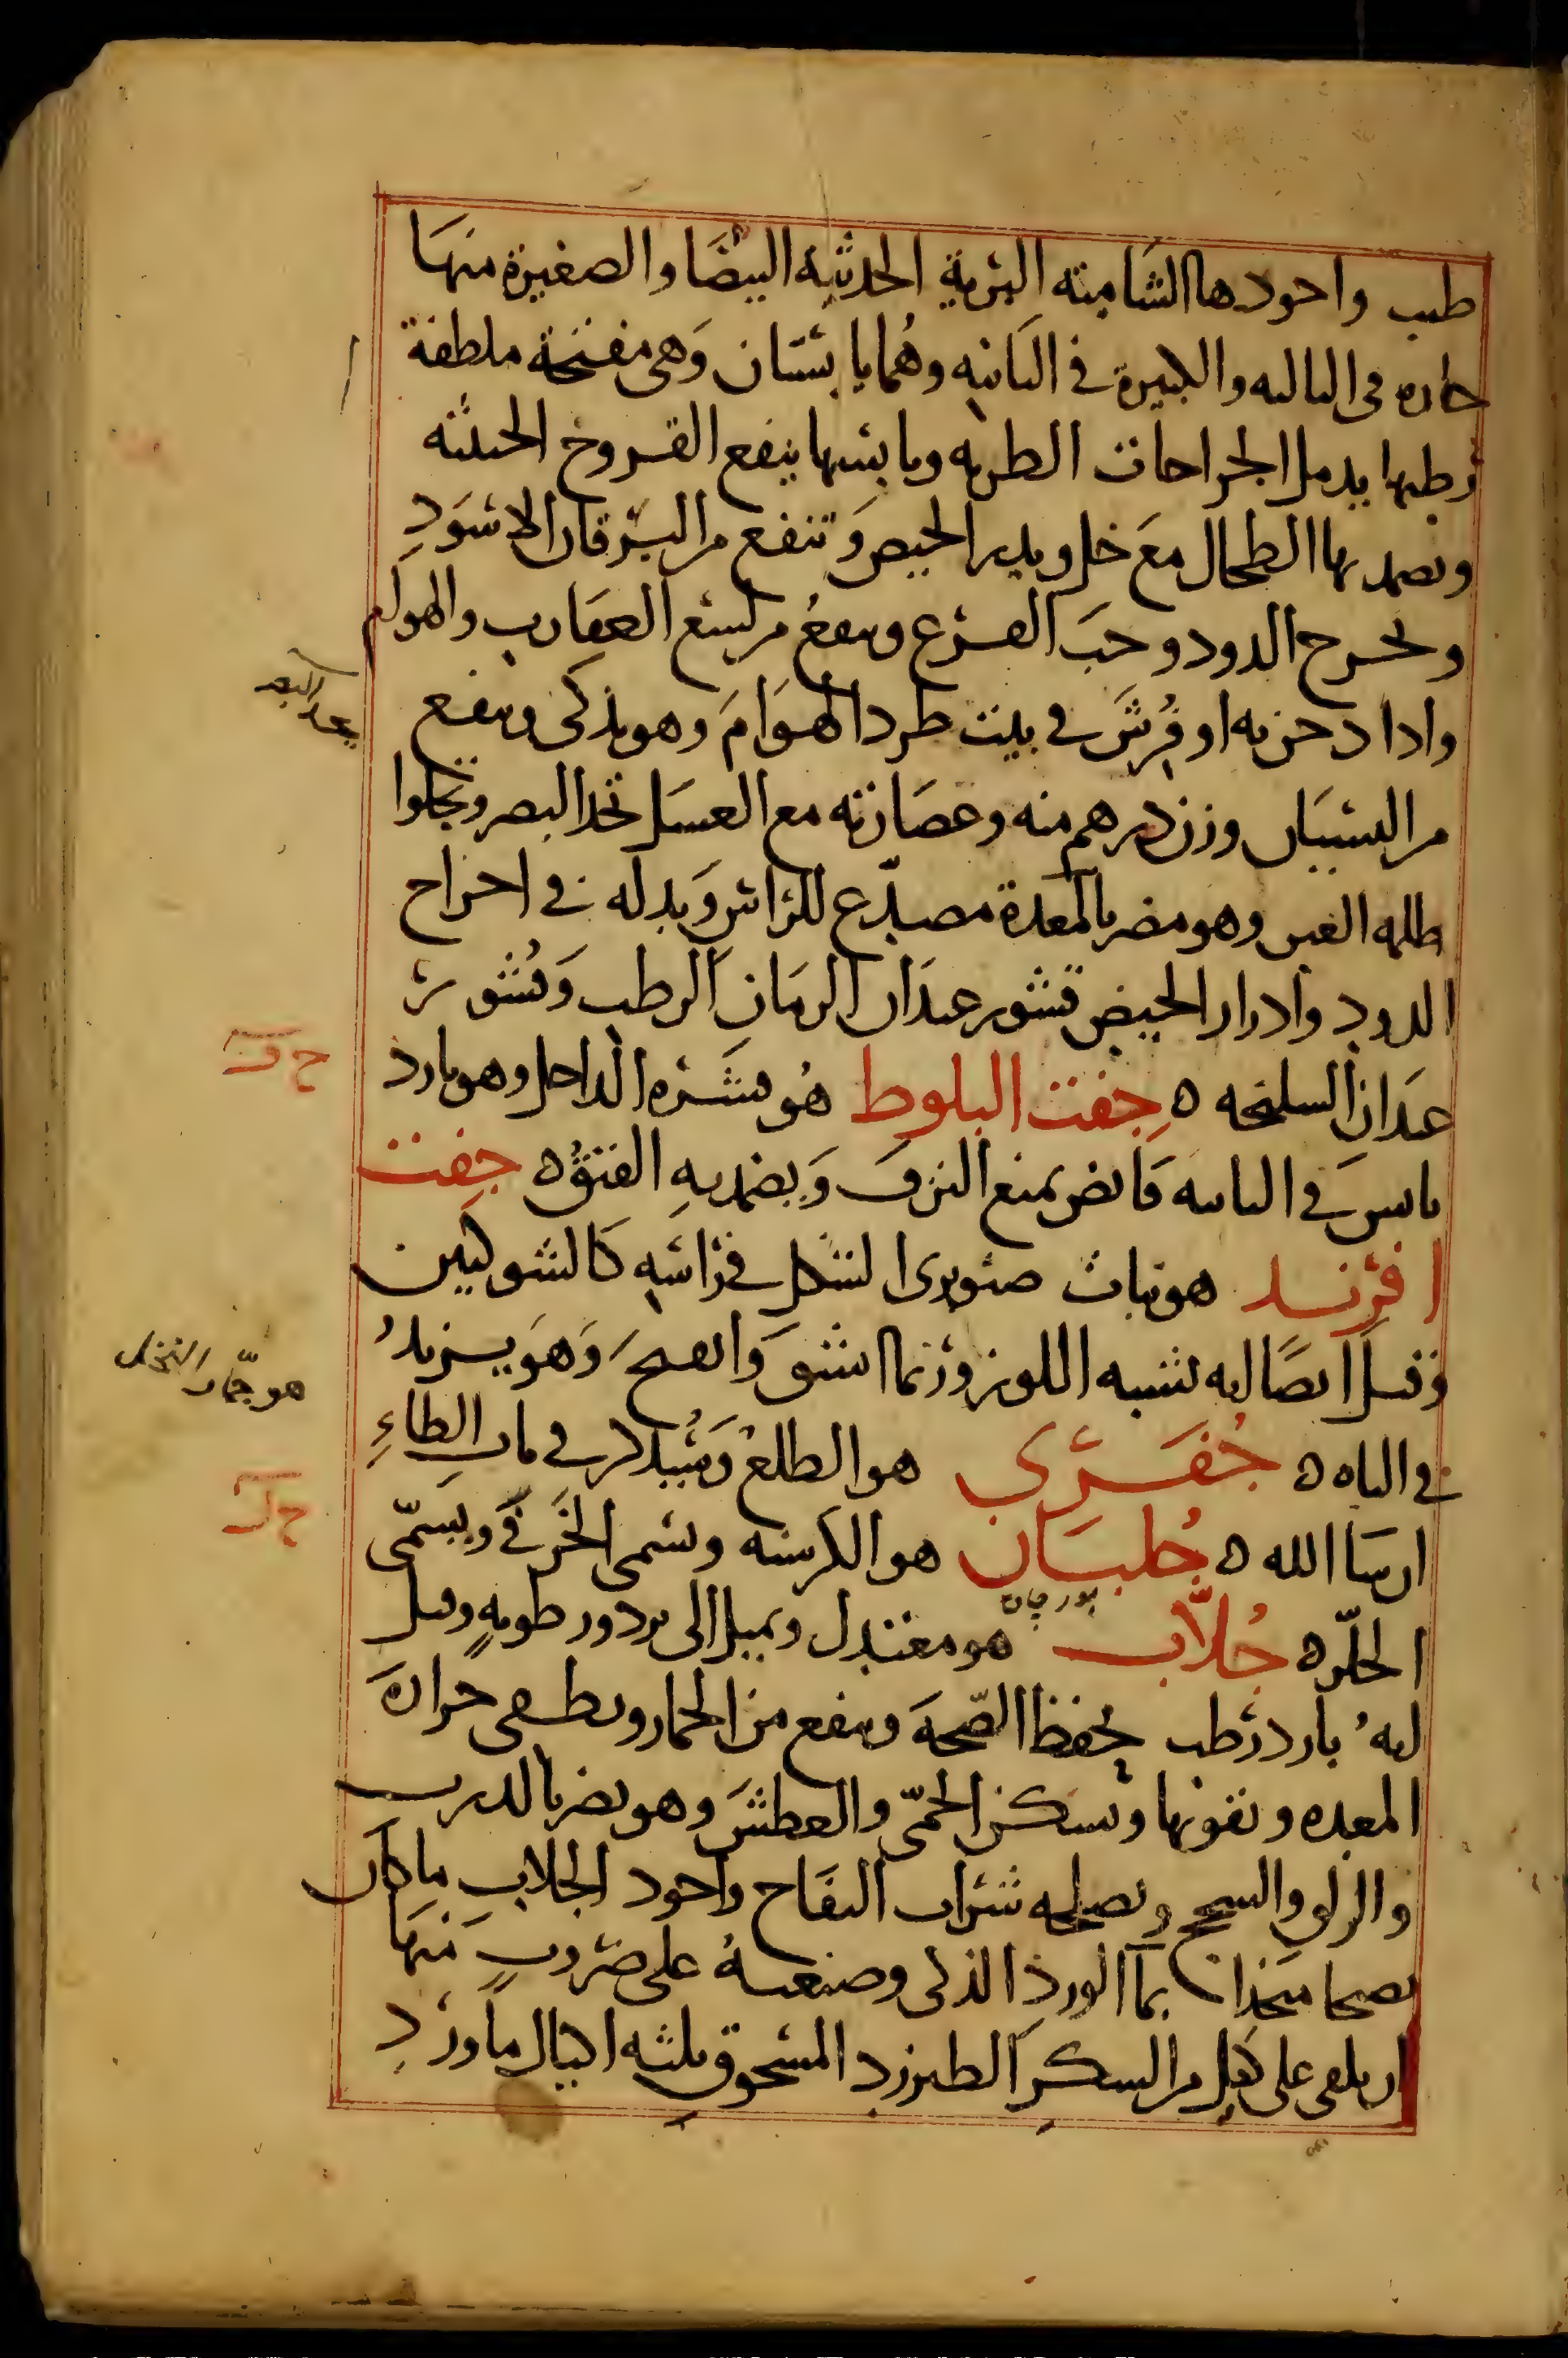 طيب واجودها الشامية البرية الحديثة البيضا والصغيرة منها
حاره فى الثالثه والكبيرة في الثانيه وهُما يابستان وَهى مفتحة ملطفة
رطبها يدمل الجراحات الطريه ويابسها ينفع القروح الخبيثه
ويضمد بها الطحال معَ خل ويدر الحيض وَتنفع من اليرقان الاسوَدِ
وتخرج الدود وحبَ القرع وينفعُ من لسع العقارب والهوام
واذا دخن به او فُرِشَ في بيت طرد الهوَامَ وهو يذكى وينفع
من النسيان وزن درهم منه وعصارته مع العسل تحد البصر وتجلوا
ظلمه العين وهو مضر بالمعدة مصدّع للراس وَبدله في اخراج
الدود وادرار الحيض قشور عيدَان الرمَانِ الرطب وَقُشور
عيدَان السليخه ٥ جِفت البلوط هُو قشره الداخل وهو بارد
يابس في الثانيه قابض يمنع النزف وَيضمد بهِ الفتق ٥ جِفت
افرِند هو نبات صنوبرى الشكل في رَاسِهِ كالشوكتين
وقيل ايضًا انه يشبه اللوز وربما انشق وانفتح وَهوَ يزيدُ
في الباه ٥ جُفَرَّى هو الطلعُ وَسيُذكر في باب الطاءِ
ان شا الله ٥ جُلبَان هو الكرسنه ويسمى الخَرفى ويسمّى
الخلّر ٥ جُلاَّب هو معتدل ويميل الى برد ورطوبهٍ وقيل
انهُ بارد رطب يحفظ الصّحة وينفع من الخمار ويطفى حرارة
المعده ويقويها ويسكن الحمّى والعطش وهو يضر بالذرب
والزلق والسحج ويصلحه شراب التفاح واجود الجلاب ما كان
متخذا بما الورد الذكى وصنعتهُ على ضروبٍ منهَا
ان يلقى على كيل من السكر الطبرزد المسحوق ثلثه اكيال ماورد
يحد البصر
هو جمّار النخل